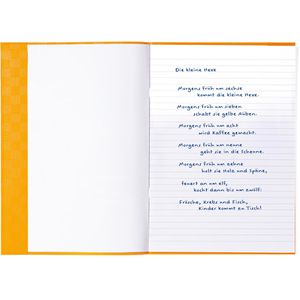 Die kleine Hexe
Morgens früh um sechse
kommt die kleine Hexe.
Morgens früh um sieben
schabt sie gelbe Rüben.
Morgens früh um acht
wird Kaffee gemacht.
Morgens früh um neune
geht sie in die Scheune.
Morgens früh um zehne
holt sie Holz und Späne,
feuert an um elf,
kocht dann bis um zwölf:
Frösche, Krebs und Fisch,
Kinder kommt zu Tisch!